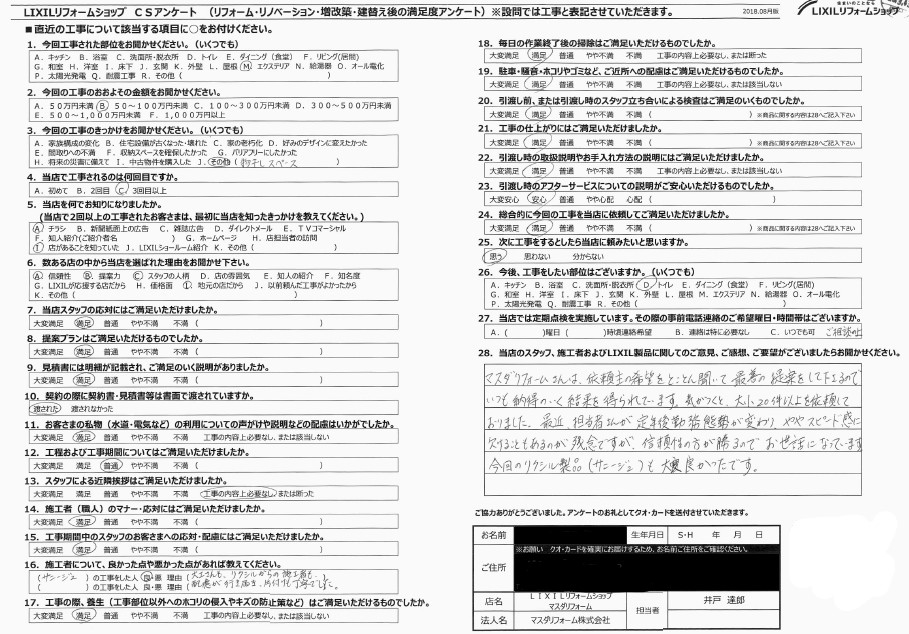 LIXILリフォームショップ CSアンケート （リフォーム・リノベーション・増改築・建替え後の満足度アンケート）※設問では工事と表記させていただきます。
2018.08月版
LIXILリフォームショップ
■直近の工事について該当する項目に○をお付けください。
1．今回工事された部位をお聞かせください。（いくつでも）
A．キッチン B．浴室 C．洗面所・脱衣所 D．トイレ E．ダイニング（食堂） F．リビング(居間)
G．和室 H．洋室 I．床下 J．玄関 K．外壁 L．屋根 M．エクステリア N．給湯器 O．オール電化
P．太陽光発電 Q．耐震工事 R．その他（ ）
2．今回の工事のおおよその金額をお聞かせください。
A．50万円未満 B．50～100万円未満 C．100～300万円未満 D．300～500万円未満
E．500～1,000万円未満 F．1,000万円以上
3．今回の工事のきっかけをお聞かせください。（いくつでも）
A．家族構成の変化 B．住宅設備が古くなった・壊れた C．家の老朽化 D．好みのデザインに変えたかった
E．間取りへの不満 F．収納スペースを確保したかった G．バリアフリーにしたかった
H．将来の災害に備えて I．中古物件を購入した J．その他（物干しスペース ）
4．当店で工事されるのは何回目ですか。
A．初めて B．2回目 C．3回目以上
5．当店を何でお知りになりましたか。
(当店で2回以上の工事されたお客さまは、最初に当店を知ったきっかけを教えてください。)
A．チラシ B．新聞紙面上の広告 C．雑誌広告 D．ダイレクトメール E．TVコマーシャル
F．知人紹介(ご紹介者名 ) G．ホームページ H．店担当者の訪問
I．店があることを知っていた J．LIXILショールーム紹介 K．その他（ ）
6．数ある店の中から当店を選ばれた理由をお聞かせ下さい。
A．信頼性 B．提案力 C．スタッフの人柄 D．店の雰囲気 E．知人の紹介 F．知名度
G．LIXILが応援する店だから H．価格面 I．地元の店だから J．以前頼んだ工事がよかったから
K．その他（ ）
7．当店スタッフの応対にはご満足いただけましたか。
大変満足 満足 普通 やや不満 不満（ ）
8．提案プランはご満足いただけるものでしたか。
大変満足 満足 普通 やや不満 不満（ ）
9．見積書には明細が記載され、ご満足のいく説明がありましたか。
大変満足 満足 普通 やや不満 不満（ ）
10．契約の際に契約書・見積書等は書面で渡されていますか。
渡された 渡されなかった
11．お客さまの私物（水道・電気など）の利用についての声がけや説明などの配慮はいかがでしたか。
大変満足 満足 普通 やや不満 不満 工事の内容上必要なし、または該当なし
12．工程および工事期間についてはご満足いただけましたか。
大変満足 満足 普通 やや不満 不満（ ）
13．スタッフによる近隣挨拶はご満足いただけましたか。
大変満足 満足 普通 やや不満 不満 工事の内容上必要なし、または断った
14．施工者（職人）のマナー・応対にはご満足いただけましたか。
大変満足 満足 普通 やや不満 不満（ ）
15．工事期間中のスタッフのお客さまへの応対・配慮にはご満足いただけましたか。
大変満足 満足 普通 やや不満 不満（ ）
16．施工者について、良かった点や悪かった点があれば教えてください。
（サニージュ ）の工事をした人 良・悪 理由（大工さんも、リクシルからの施工者も、
（ ）の工事をした人 良・悪 理由（
17．工事の際、養生（工事部位以外へのホコリの侵入やキズの防止策など）はご満足いただけるものでしたか。
大変満足 満足 普通 やや不満 不満 工事の内容上必要なし、または該当なし
18．毎日の作業終了後の掃除はご満足いただけるものでしたか。
大変満足 満足 普通 やや不満 不満 工事の内容上必要なし、または断った
19．駐車・騒音・ホコリやゴミなど、ご近所への配慮はご満足いただけるものでしたか。
大変満足 満足 普通 やや不満 不満 工事の内容上必要なし、または該当なし
20．引渡し前、または引渡し時のスタッフ立ち合いによる検査はご満足のいくものでしたか。
大変満足 満足 普通 やや不満 不満（ ）※商品に関する内容は28へご記入下さい
21．工事の仕上がりにはご満足いただけましたか。
大変満足 満足 普通 やや不満 不満（ ）※商品に関する内容は28へご記入下さい
22．引渡し時の取扱説明やお手入れ方法の説明にはご満足いただけましたか。
大変満足 満足 普通 やや不満 不満 工事の内容上必要なし、または該当なし
23．引渡し時のアフターサービスについての説明がご安心いただけるものでしたか。
大変安心 安心 普通 やや心配 心配（ ）
24．総合的に今回の工事を当店に依頼してご満足いただけましたか。
大変満足 満足 普通 やや不満 不満（ ）※商品に関する内容は28へご記入下さい
25．次に工事をするとしたら当店に頼みたいと思いますか。
思う 思わない 分からない
26．今後、工事をしたい部位はございますか。（いくつでも）
A．キッチン B．浴室 C．洗面所・脱衣所 D．トイレ E．ダイニング（食堂） F．リビング(居間)
G．和室 H．洋室 I．床下 J．玄関 K．外壁 L．屋根 M．エクステリア N．給湯器 O．オール電化
P．太陽光発電 Q．耐震工事 R．その他（ ）
27．当店では定期点検を実施しています。その際の事前電話連絡のご希望曜日・時間帯はございますか。
A．（ )曜日（ )時頃連絡希望 B．連絡は特に必要なし C．いつでも可 ご相談の上
28．当店のスタッフ、施工者およびLIXIL製品に関してのご意見、ご感想、ご要望がございましたらお聞かせください。
マスダリフォームさんは、依頼主の希望をとことん聞いて最善の提案をして下さるので
いつも納得のいく結果を得られています。気がつくと、大小20件以上を依頼して
おりました。最近、担当者さんが定年後勤務態勢が変わり、ややスピード感に
欠けることもあるのが残念ですが、信頼性の方が勝るのでお世話になっています
今回のリクシル製品（サニージュ）も大変良かったです。
ご協力ありがとうございました。アンケートのお礼としてクオ・カードを送付させていただきます。
お名前 生年月日 S・H 年 月 日
※お願い クオ・カードを確実にお届けするため、お名前ご住所をご確認ください。
ご住所
店名 LIXILリフォームショップ
マスダリフォーム 担当者 井戸 達郎
法人名 マスダリフォーム株式会社